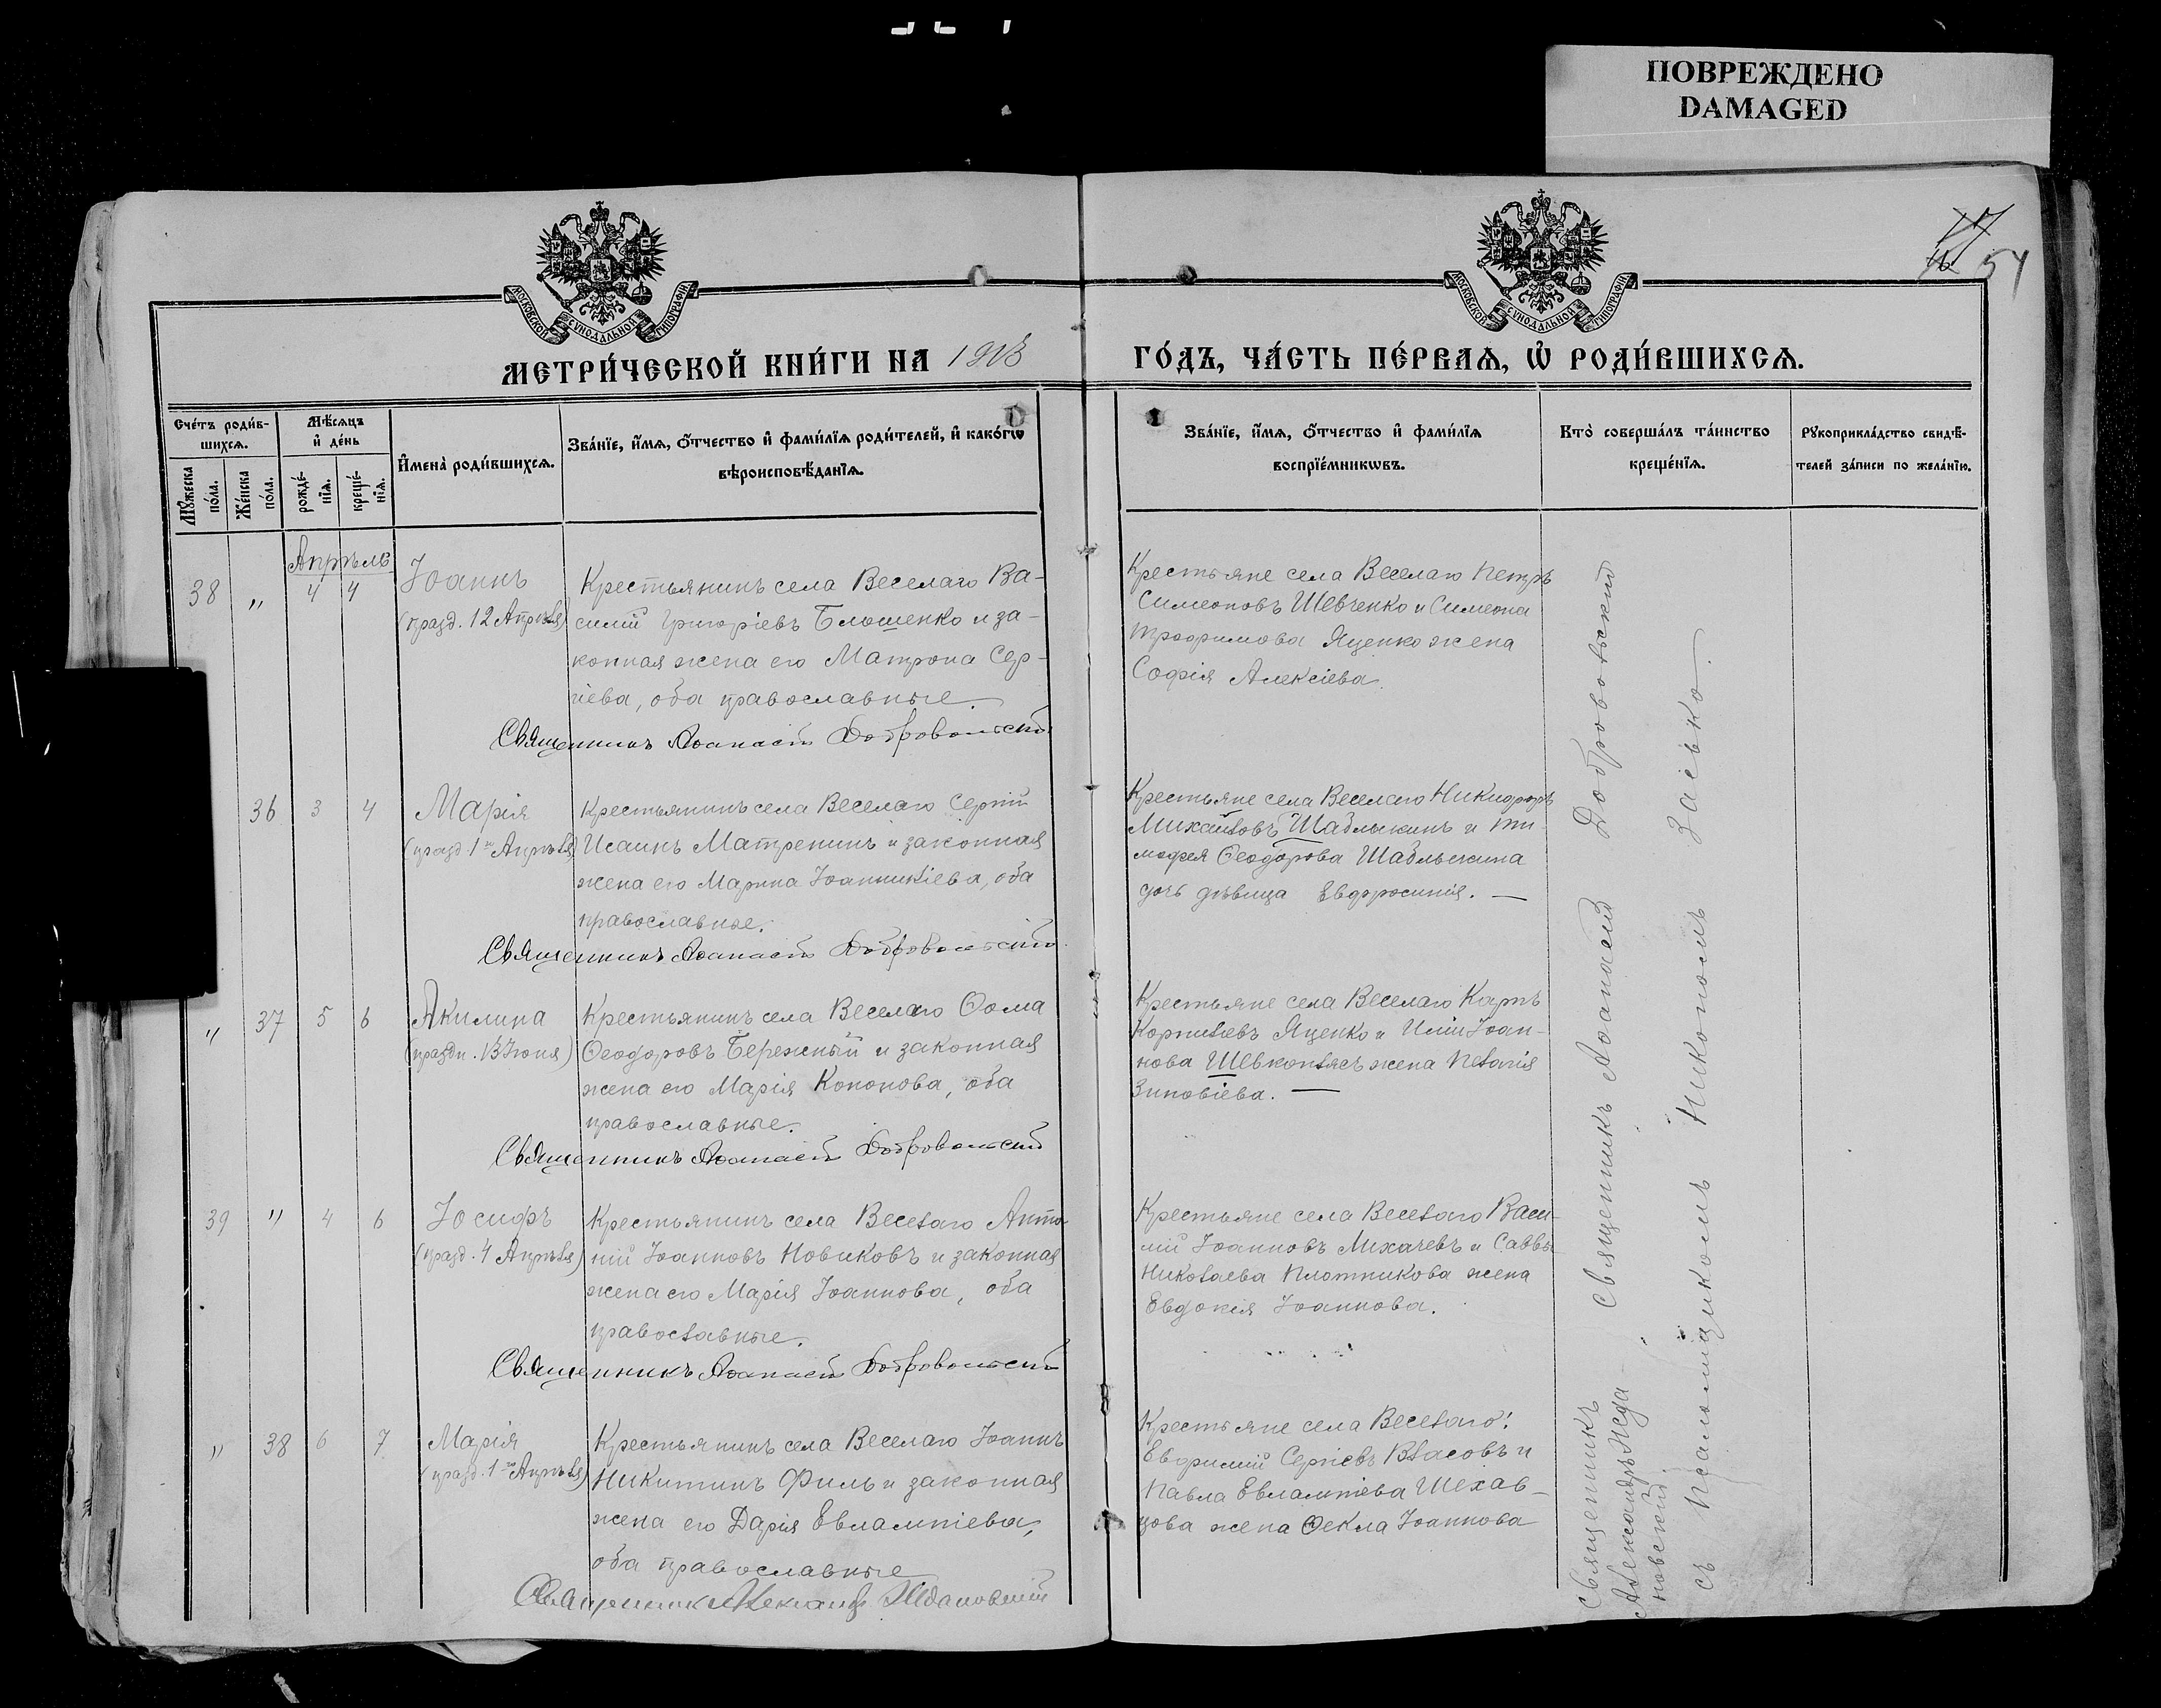 ПОВРЕЖДЕНО
DAMAGED
54
МОСКОВСКОЙ СѴНОДАЛЬНОЙ ТИПОГРАФІИ
МОСКОВСКОЙ СѴНОДАЛЬНОЙ ТИПОГРАФІИ
МЕТРИ́ЧЕСКОЙ КНИ́ГИ НА 1913
ГО́ДЪ, ЧА́СТЬ ПЕ́РВАѦ, Ѡ҆ РОДИ́ВШИХСѦ.
Сче́тъ роди́в-
шихсѧ.
Мѣ́сѧцъ
и҆ де́нь
Мꙋ́жеска
по́ла.
Же́нска
по́ла.
рожде́-
нїѧ.
креще́-
нїѧ.
И҆мена̀ роди́вшихсѧ.
Зва́нїе, и҆́мѧ, ѻ҆́тчество и҆ фами́лїѧ роди́телей, и҆ како́гѡ
вѣроисповѣ́данїѧ.
Зва́нїе, и҆́мѧ, ѻ҆́тчество и҆ фами́лїѧ
воспрїе́мникѡвъ.
Кто̀ соверша́лъ та́инство
креще́нїѧ.
Рꙋкоприкла́дство свидѣ́-
телей за́писи по жела́нїю.
Апрѣль
38 " 4 4
Іоаннъ
(празд. 12 Апрѣля)
Крестьянинъ села Веселаго Ва-
силій Григоріевъ Блошенко и за-
конная жена его Матрона Сер-
гіева, оба православные.
Священникъ Аѳанасій Добровольскій
Крестьяне села Веселаго Петръ
Симеоновъ Шевченко и Симеона
Трофимова Яценко жена
Софія Алексіева.
36 3 4
Марія
(празд. 1го Апрѣля)
Крестьянинъ села Веселаго Сергій
Исаинъ Матренинъ и законная
жена его Марина Іоанникіева, оба
православные.
Священникъ Аѳанасій Добровольскій
Крестьяне села Веселаго Никифоръ
Михайловъ Шаблыкинъ и Ти-
мофея Ѳеодорова Шаблыкина
дочь дѣвица Евфросинія. —
" 37 5 6
Акилина
(праздн. 13 Іюня)
Крестьянинъ села Веселаго Ѳома
Ѳеодоровъ Бережный и законная
жена его Марія Кононова, оба
православные.
Священникъ Аѳанасій Добровольскій
Крестьяне села Веселаго Карпъ
Корниліевъ Яценко и Иліи Іоан-
нова Шевкоплясъ жена Пелагія
Зиновіева. —
39 " 4 6
Іосифъ
(празд. 4 Апрѣля)
Крестьянинъ села Веселаго Анто-
ній Іоанновъ Новиковъ и законная
жена его Марія Іоаннова, оба
православные.
Священникъ Аѳанасій Добровольскій
Крестьяне села Веселаго Васи-
лій Іоанновъ Михачевъ и Саввы
Николаева Плотникова жена
Евдокія Іоаннова.
" 38 6 7
Марія
(празд. 1го Апрѣля)
Крестьянинъ села Веселаго Іоаннъ
Никитинъ Филь и законная
жена его Дарія Евлампіева,
оба православные
Священникъ Александръ Ждановскій
Крестьяне села Веселаго:
Евфимій Сергіевъ Власовъ и
Павла Евлампіева Шехав-
цова жена Ѳекла Іоаннова
Священникъ Аѳанасій Добровольскій
Священникъ
Александръ Жда-
новскій
съ Псаломщикомъ Никономъ Заіенко.